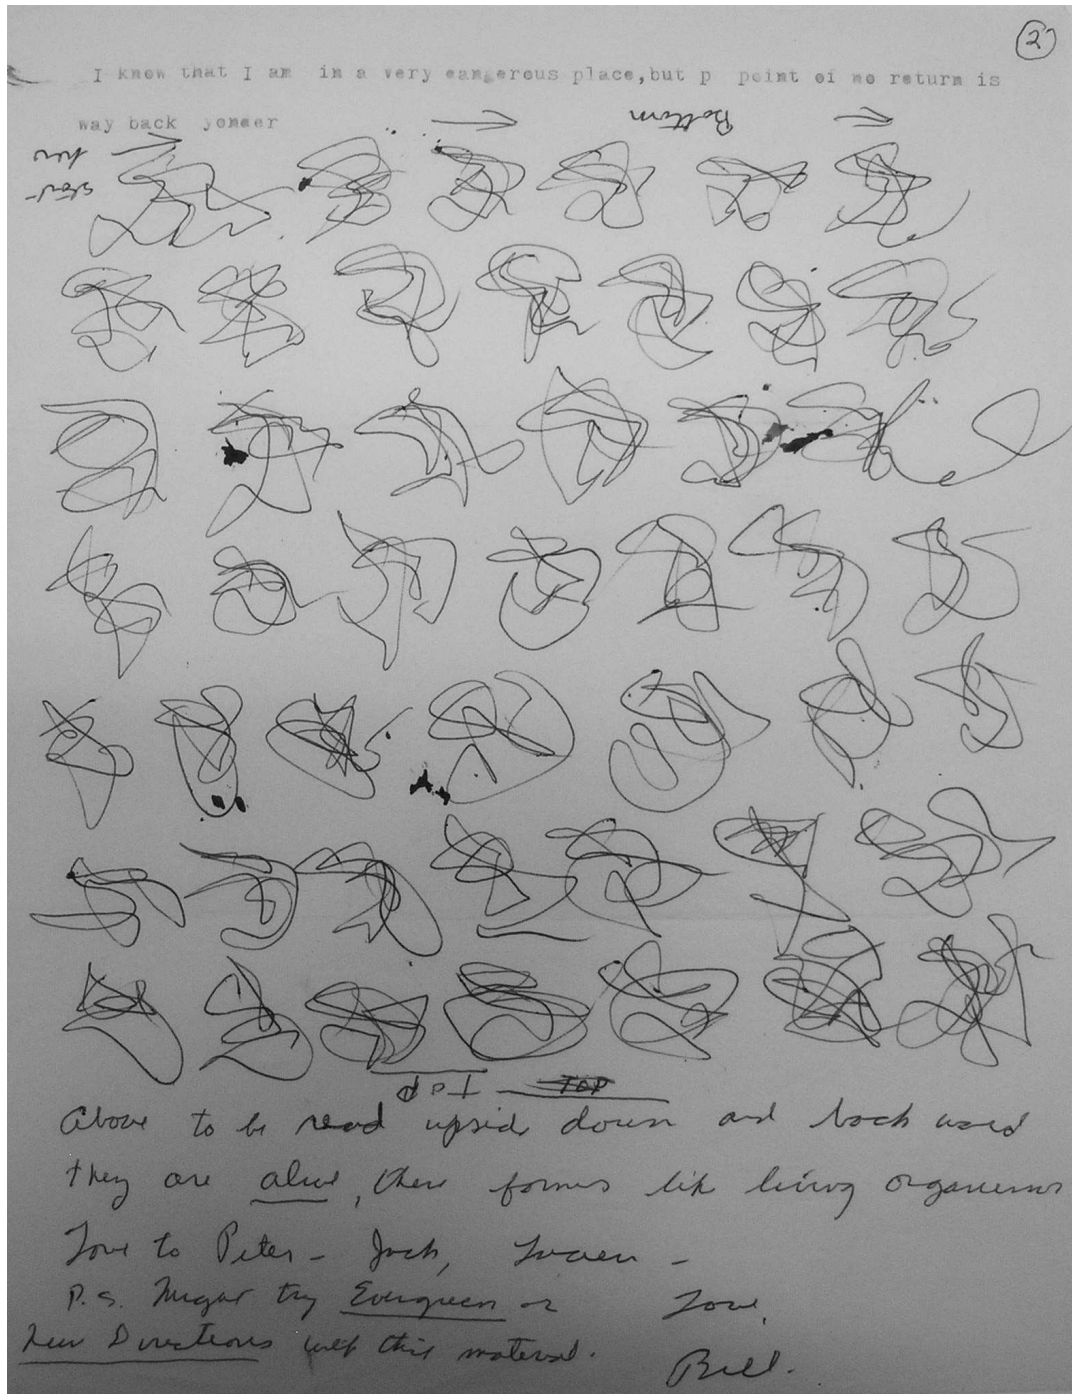 2
I know that I am in a very eangerous place,but p point of no return is
way back yonder
Bottom
start
her
Top TOP
Above to be read upside down and back ward
they are alive, these forms like living organisms
Love to Peter - Jack, Lucien -
P.S. Might try Evergreen or Love,
New Directions with this material.
Bill.